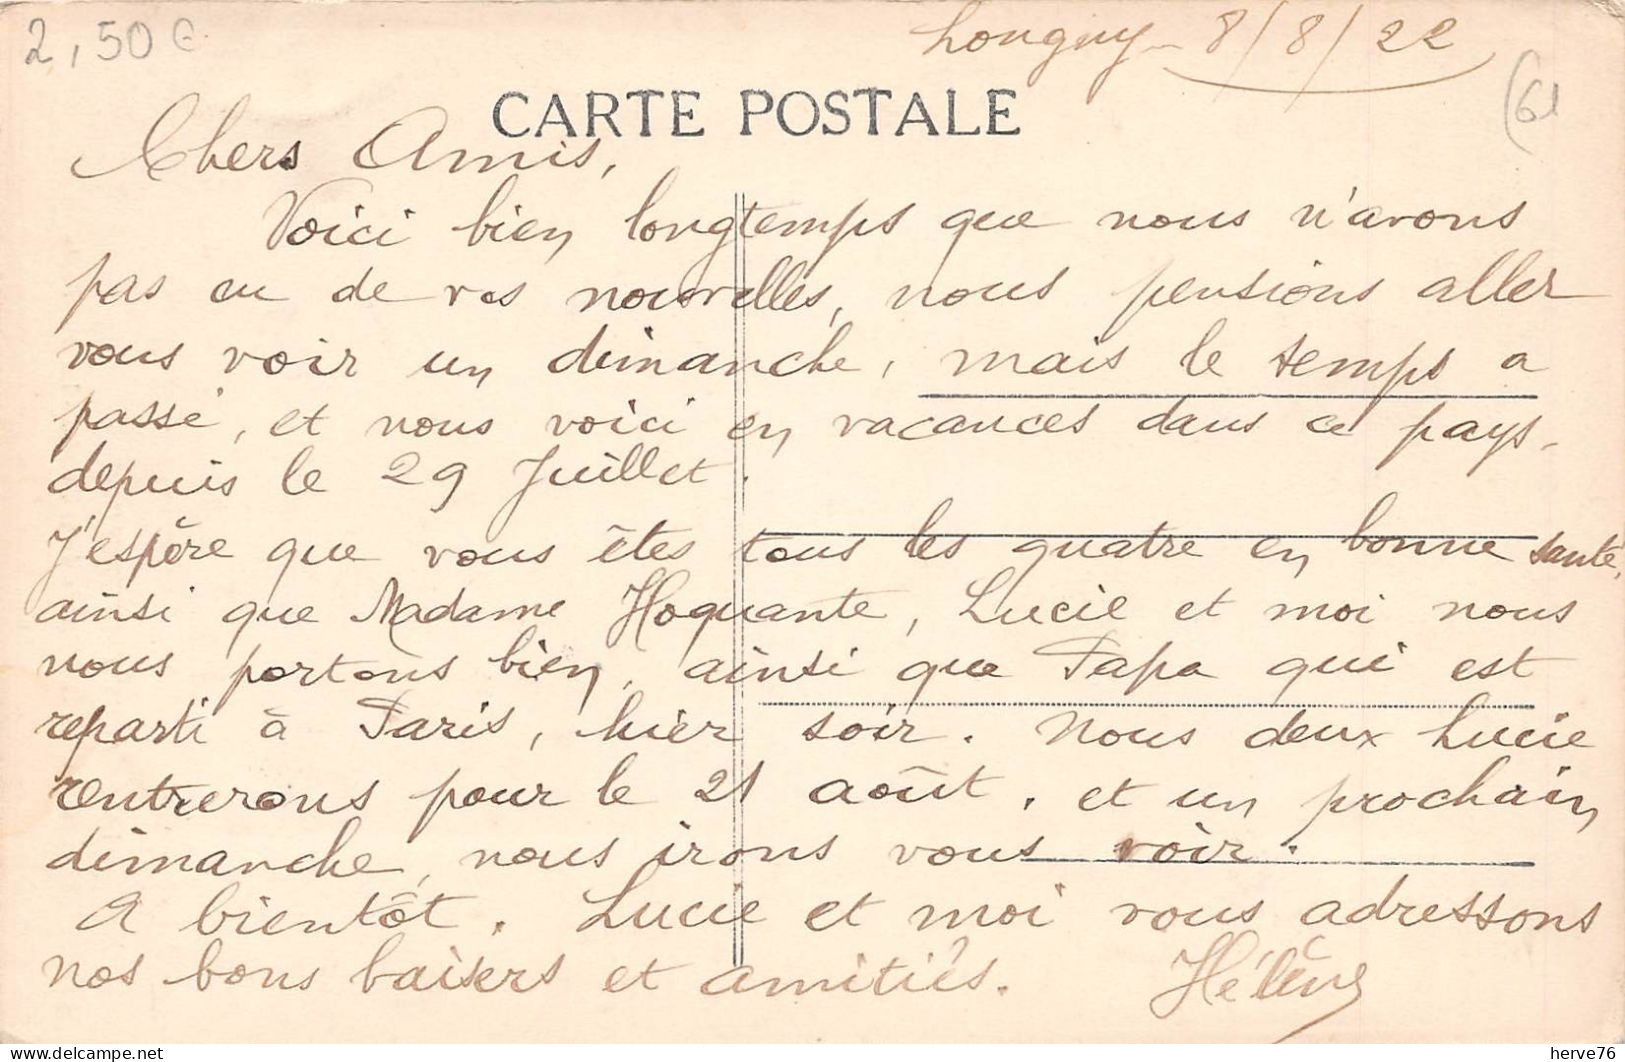 2,50€
Longny - 8/8/22
(61
CARTE POSTALE
Chers Amis,
Voici bien longtemps que nous n'avons
pas eu de vos nouvelles, nous pensions aller
vous voir un dimanche, mais le temps a
passé, et nous voici en vacances dans ce pays.
depuis le 29 Juillet.
J'espère que vous êtes tous les quatre en bonne santé,
ainsi que Madame Hoquante, Lucie et moi nous
nous portons bien, ainsi que Papa qui est
reparti à Paris, hier soir. Nous deux Lucie
rentrerons pour le 21 août, et un prochain
dimanche, nous irons vous voir.
A bientôt. Lucie et moi vous adressons
nos bons baisers et amitiés. Hélène
delcampe.net
herve76